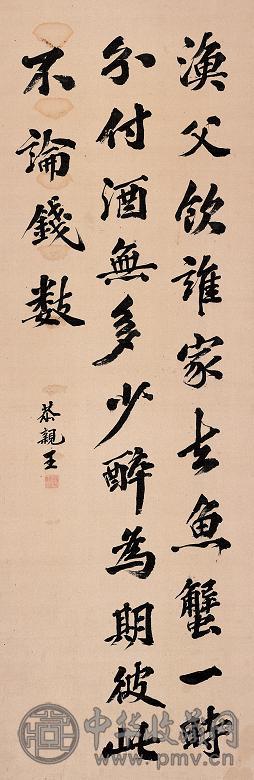 漁父飲誰家去魚蟹一時
分付酒無多少醉為期彼此
不論錢數
恭親王
中华收藏网
www.pmv.cn